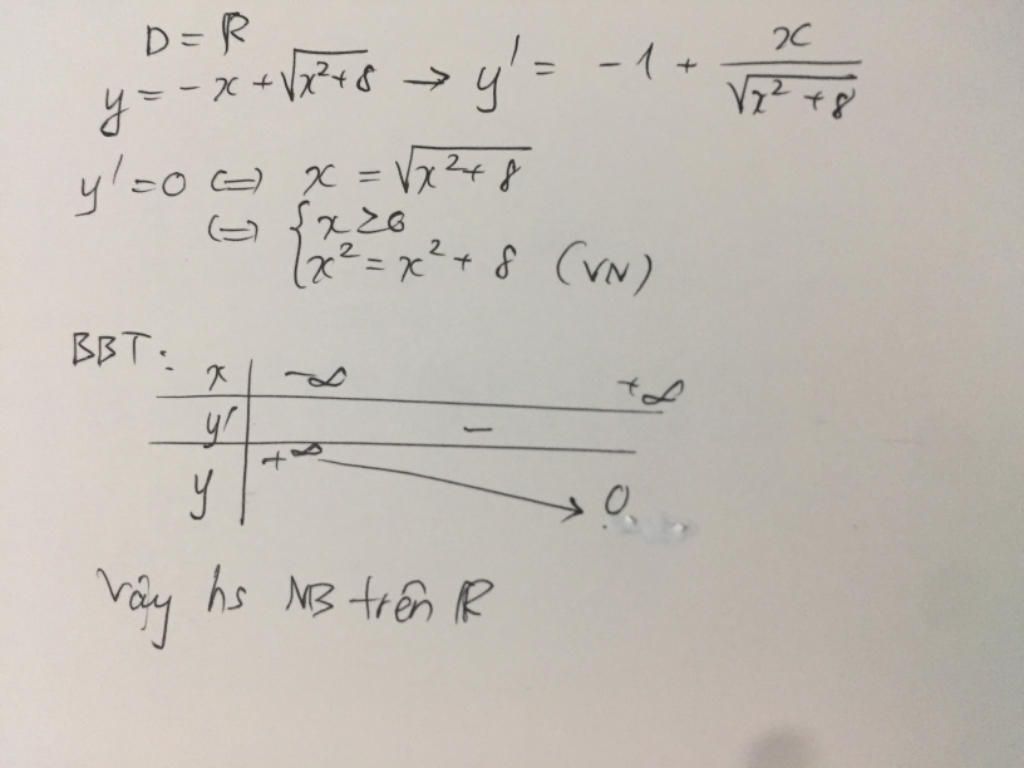 D = ℝ
y = -x + √(x²+8) → y' = -1 + x/√(x²+8)
y' = 0 ⇔ x = √(x²+8)
⇔ { x ≥ 0
x² = x² + 8 (VN)
BBT:
x -∞ +∞
y' -
y +∞ 0
Vậy hs NB trên ℝ